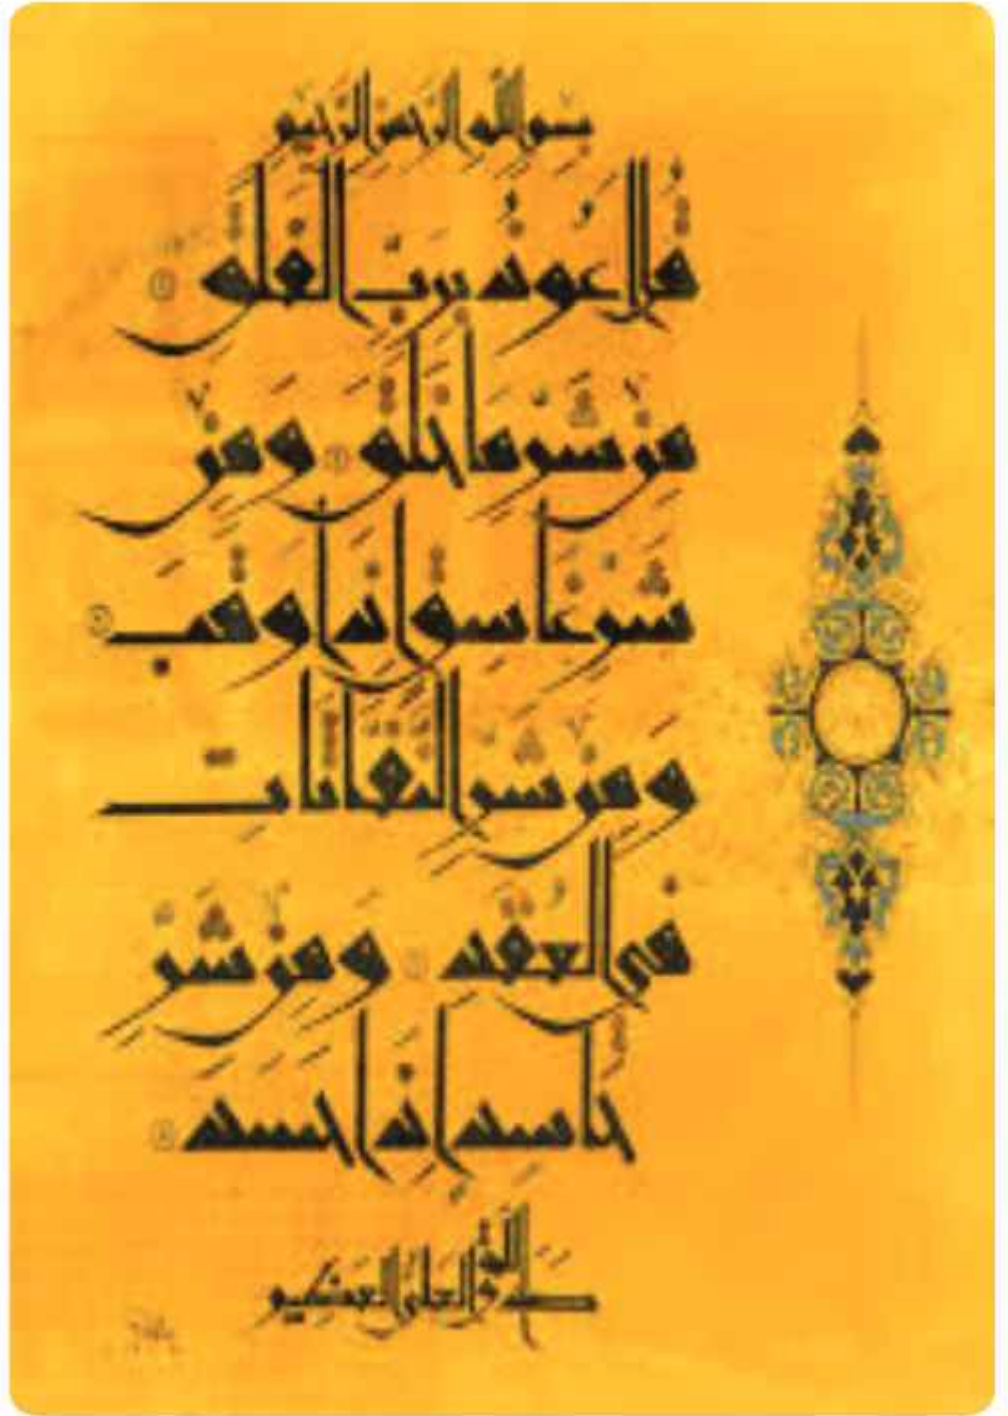 بسم الله الرحمن الرحيم
قُل أَعُوذُ بِرَبِّ الفَلَقِ ١
مِن شَرِّ مَا خَلَقَ ٢ وَمِن
شَرِّ غَاسِقٍ إِذَا وَقَبَ ٣
وَمِن شَرِّ النَّفَّاثَاتِ
فِي العُقَدِ ٤ وَمِن شَرِّ
حَاسِدٍ إِذَا حَسَدَ ٥
صدق الله العلي العظيم